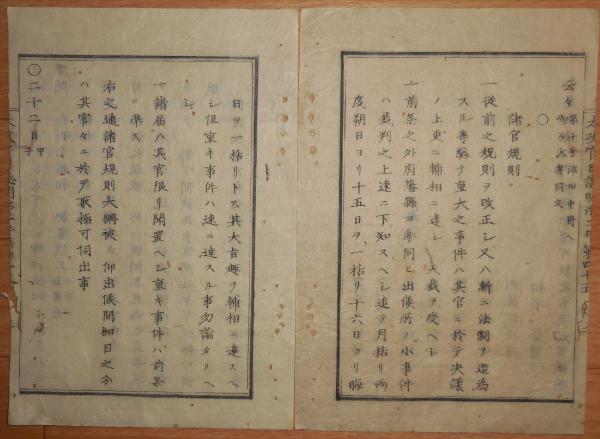 太政官日誌明治二年第四十五
諸官規則
一從前之規則ヲ改正シ又ハ新ニ法制ヲ造為
スル等總テ重大之事件ハ其官ニ於テ決議
ノ上更ニ輔相ニ達シ 天裁ヲ受ヘシ
一前条之外府藩縣ヨリ伺ヒ出候所ノ小事件
ハ裁判之上速ニ下知スヘシ追テ月括リ両
度朔日ヨリ十五日ヲ一括リ十六日ヨリ晦
日ヲ一括リトス其大旨趣ヲ輔相ニ達スヘ
シ但重キ事件ハ速ニ達スル事勿論タルヘ
シ
一諸届ハ其官限リ聞置ヘシ重キ事件ハ前条
ニ準ス
右之通諸官規則大綱被 仰出候間細目之分
ハ其官々ニ於テ取極可伺出事
二十二日甲子